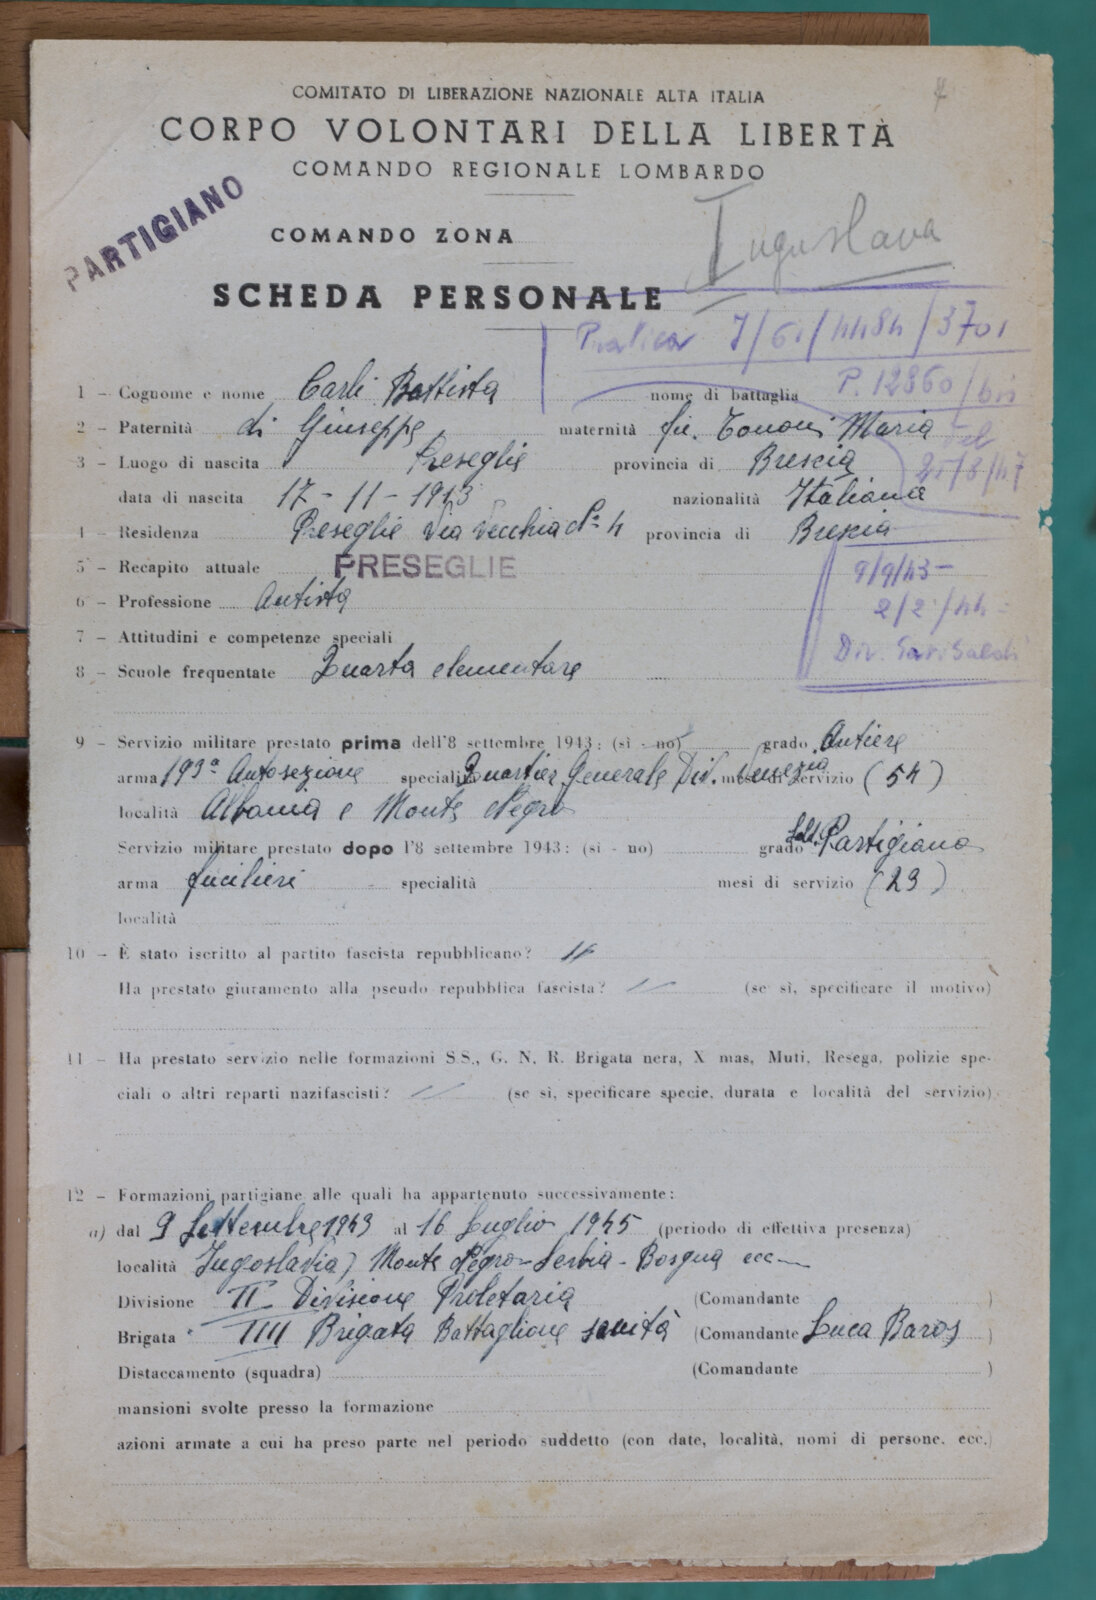 COMITATO DI LIBERAZIONE NAZIONALE ALTA ITALIA
CORPO VOLONTARI DELLA LIBERTÀ
COMANDO REGIONALE LOMBARDO
PARTIGIANO
COMANDO ZONA
Iugoslava
SCHEDA PERSONALE
Pratica 7/61/4484/3701
P. 12860/bis
1 - Cognome e nome Carli Battista nome di battaglia
2 - Paternità di Giuseppe maternità fu. Tononi Maria
del 25/8/47
3 - Luogo di nascita Preseglie provincia di Brescia
data di nascita 17-11-1913 nazionalità Italiana
4 - Residenza Preseglie Via Vecchia N° 4 provincia di Brescia
5 - Recapito attuale PRESEGLIE
9/9/43-
6 - Professione Autista
2/2/44-
7 - Attitudini e competenze speciali
Div. Garibaldi
8 - Scuole frequentate Quarta elementare
9 - Servizio militare prestato prima dell'8 settembre 1943: (sì - no) grado Autiere
arma 193ª Autosezione specialità Quartier Generale Div. Venezia mesi di servizio (54)
località Albania e Monte Negro
Servizio militare prestato dopo l'8 settembre 1943: (sì - no) grado Sold. Partigiano
arma fucilieri specialità mesi di servizio (23)
località
10 - È stato iscritto al partito fascista repubblicano? //
Ha prestato giuramento alla pseudo repubblica fascista? // (se sì, specificare il motivo)
11 - Ha prestato servizio nelle formazioni S.S., G. N. R. Brigata nera, X mas, Muti, Resega, polizie spe-
ciali o altri reparti nazifascisti? // (se sì, specificare specie, durata e località del servizio)
12 - Formazioni partigiane alle quali ha appartenuto successivamente:
a) dal 9 Settembre 1943 al 16 Luglio 1945 (periodo di effettiva presenza)
località Jugoslavia) Monte Negro-Serbia-Bosgna ecc
Divisione II Divisione Proletaria (Comandante )
Brigata IIII Brigata Battaglione sanità (Comandante Luca Baros )
Distaccamento (squadra) (Comandante )
mansioni svolte presso la formazione
azioni armate a cui ha preso parte nel periodo suddetto (con date, località, nomi di persone, ecc.)